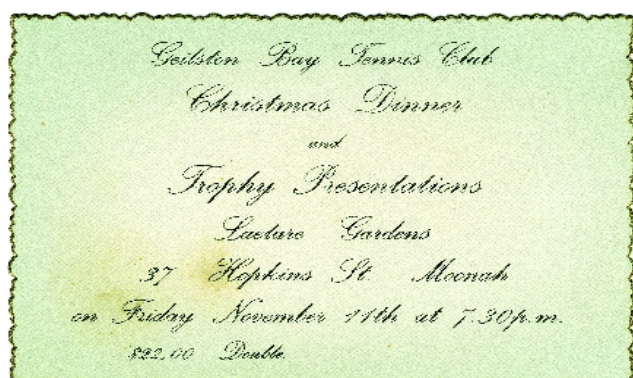 Geilston Bay Tennis Club
Christmas Dinner
and
Trophy Presentations
Laeture Gardens
37 Hopkins St. Moonah
on Friday November 11th at 7.30p.m.
$22.00 Double.